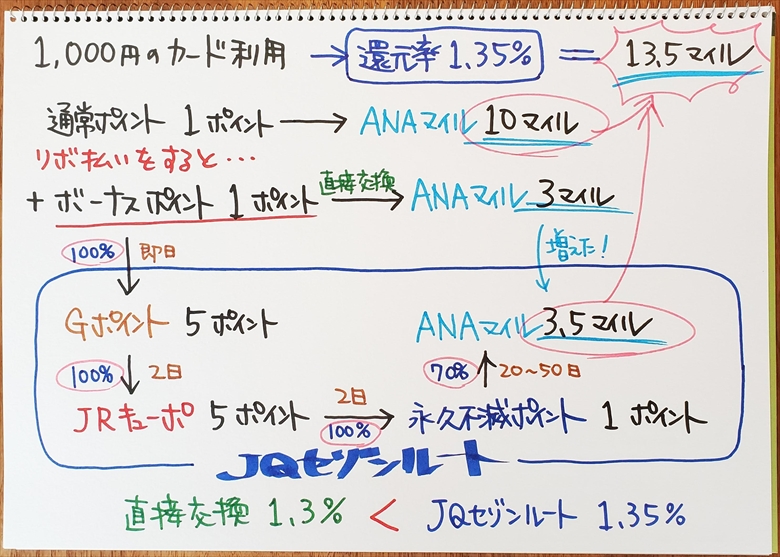 1,000円のカード利用 → 還元率 1.35% = 13.5マイル
通常ポイント 1ポイント → ANAマイル 10マイル
リボ払いをすると…
+ ボーナスポイント 1ポイント 直接交換 → ANAマイル 3マイル
100% 即日 増えた!
Gポイント 5ポイント ANAマイル 3.5マイル
100% 2日 70% 20~50日
JRキューポ 5ポイント 2日 → 100% 永久不滅ポイント 1ポイント
JQセゾンルート
直接交換 1.3% < JQセゾンルート 1.35%